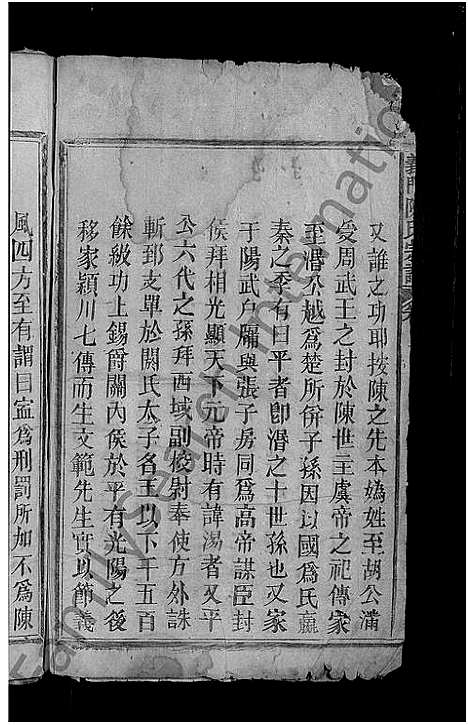 義門陳氏宗譜
又誰之功耶按陳之先本媯姓至胡公滿
受周武王之封於陳世主虞帝之祀傳家
至湣公越爲楚所併子孫因以國爲氏嬴
秦之季有曰平者卽湣之十世孫也又家
于陽武户牖與張子房同爲高帝謀臣封
侯拜相光顯天下元帝時有諱湯者又平
公六代之孫拜西域副校尉奉使方外誅
斬郅支單於閼氏太子名王以下千五百
餘級功上錫爵關內侯於平有光陽之後
移家穎川七傳而生文範先生實以節義
風四方至有謂曰寍爲刑罰所加不爲陳
FamilySearch International